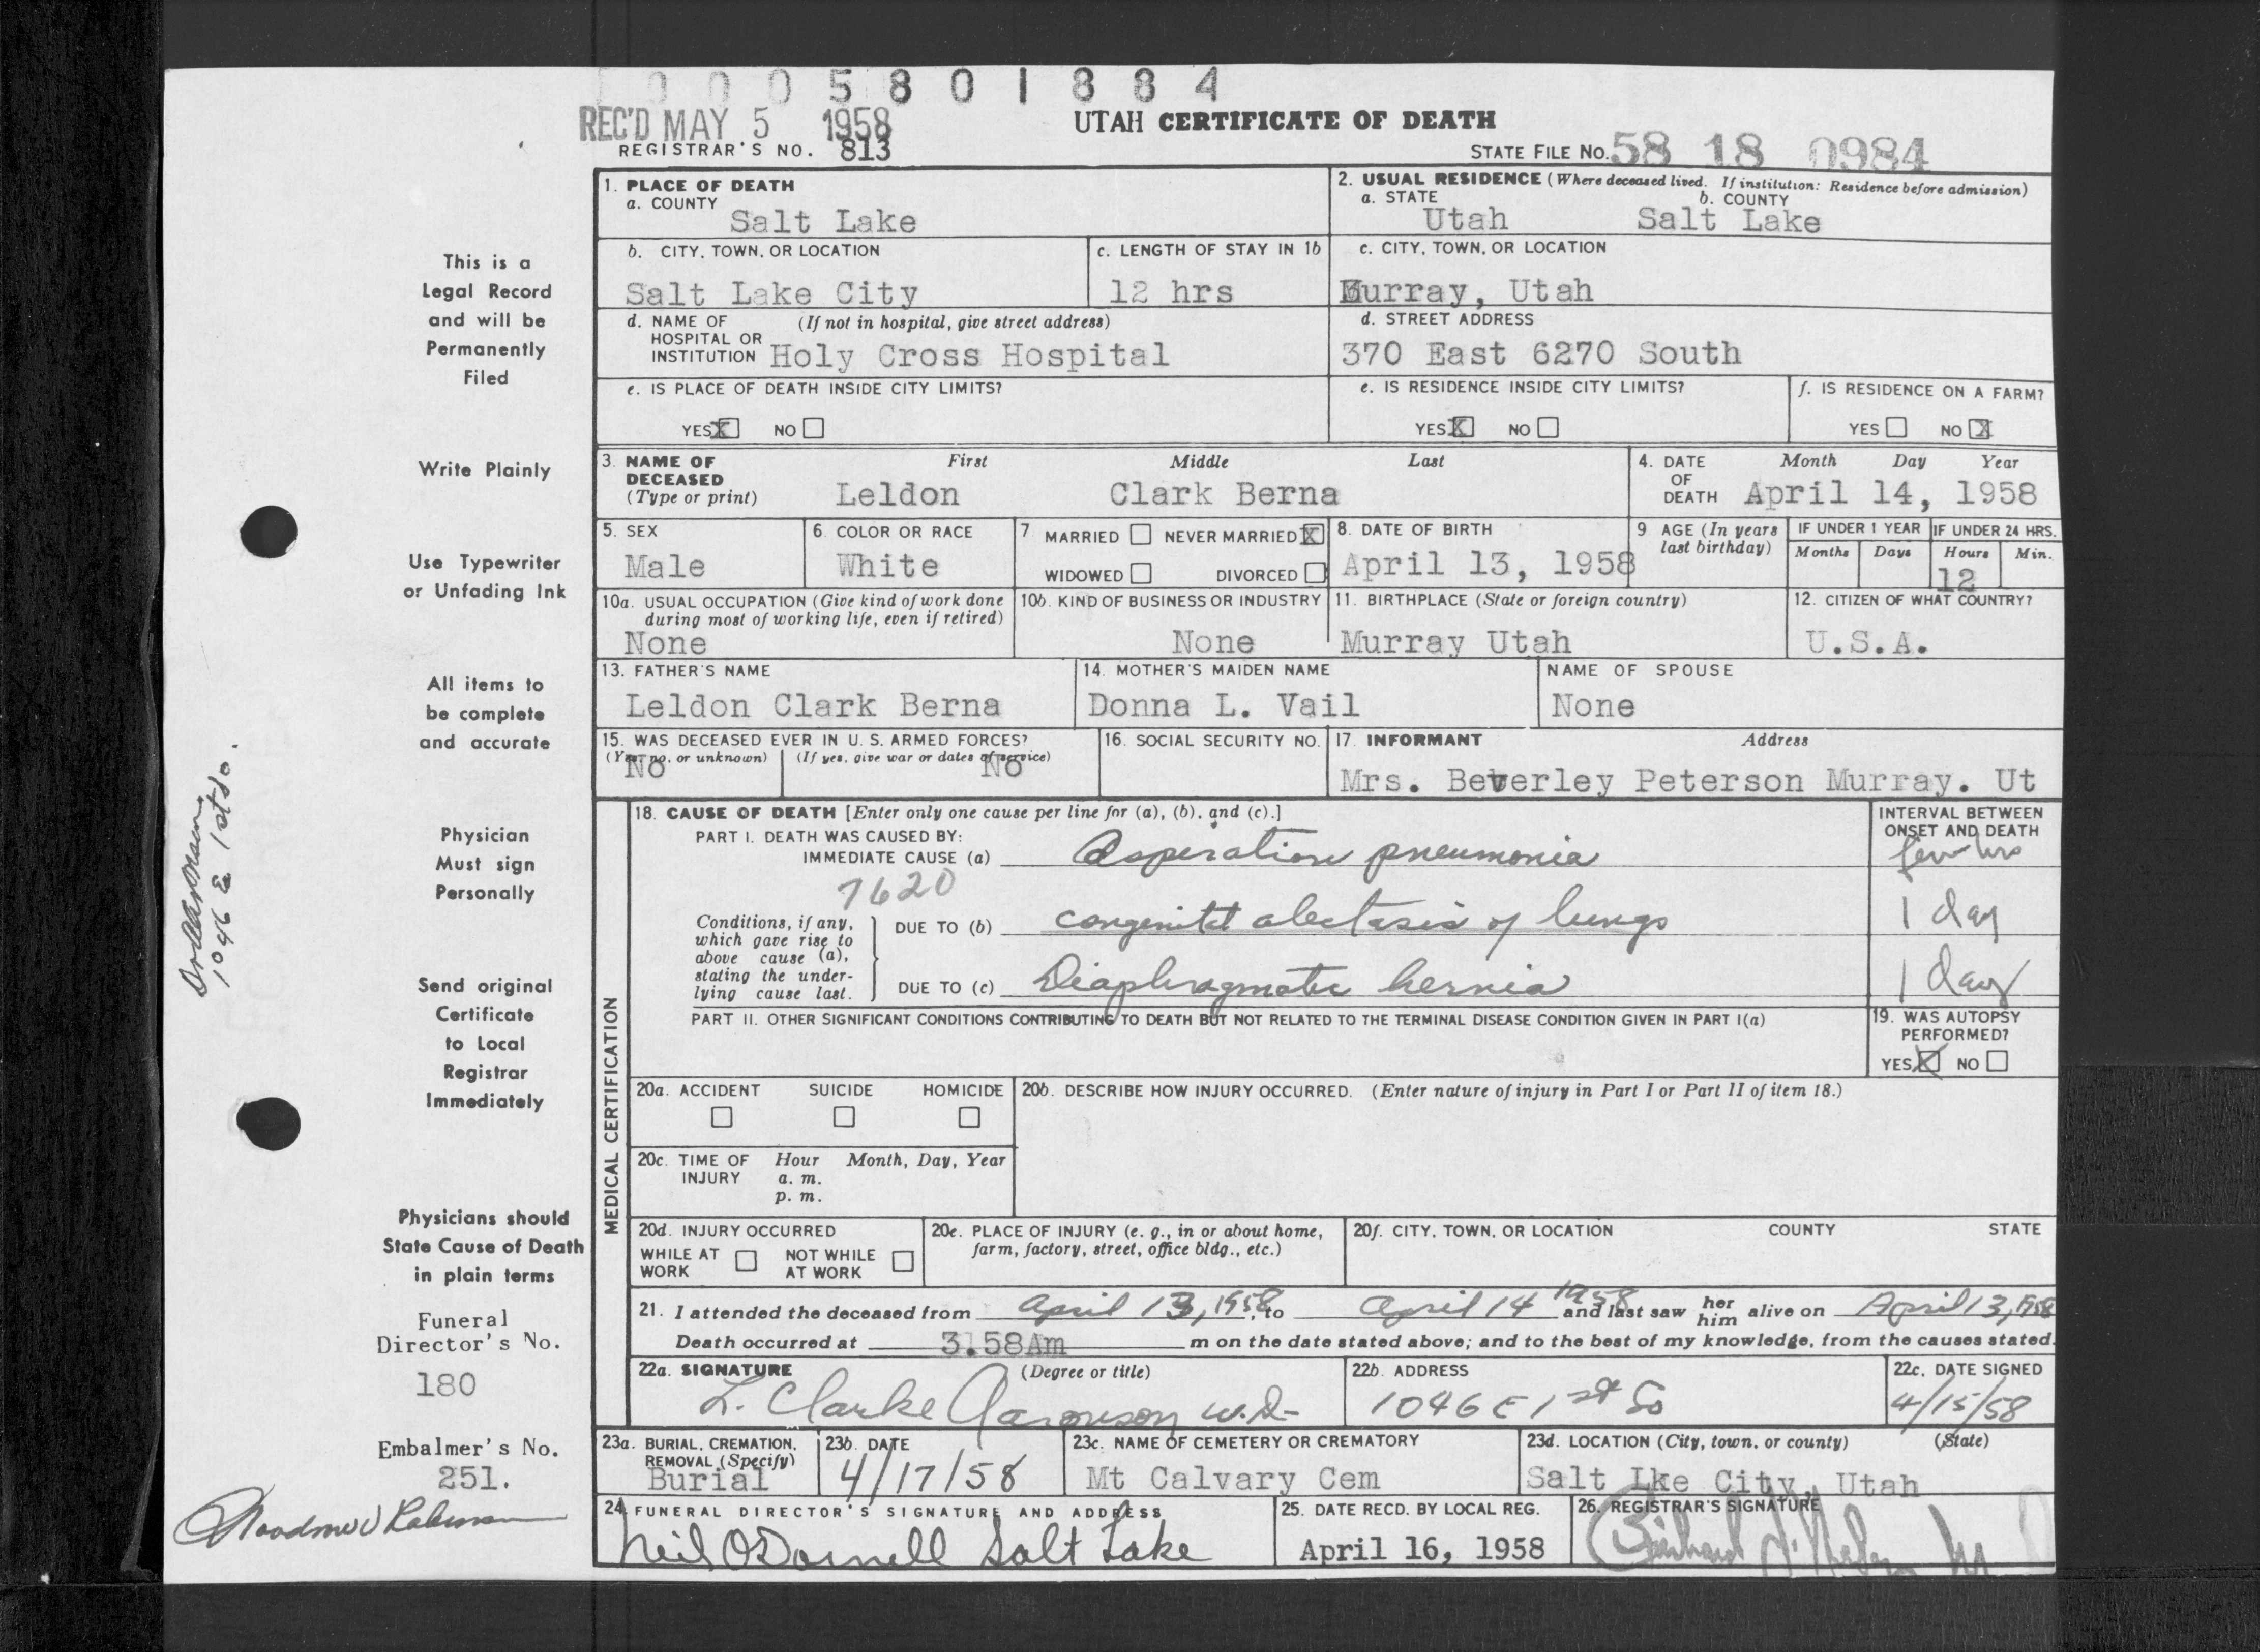 0005801884
REC'D MAY 5 1958
UTAH CERTIFICATE OF DEATH
REGISTRAR'S NO. 813
STATE FILE NO. 58 18 0984
This is a
Legal Record
and will be
Permanently
Filed
Write Plainly
Use Typewriter
or Unfading Ink
All items to
be complete
and accurate
Physician
Must sign
Personally
Send original
Certificate
to Local
Registrar
Immediately
Physicians should
State Cause of Death
in plain terms
Funeral
Director's No.
180
Embalmer's No.
251.
1046 E 1st So.
1. PLACE OF DEATH
a. COUNTY
Salt Lake
2. USUAL RESIDENCE (Where deceased lived. If institution: Residence before admission)
a. STATE b. COUNTY
Utah Salt Lake
b. CITY, TOWN, OR LOCATION
Salt Lake City
c. LENGTH OF STAY IN 1b
12 hrs
c. CITY, TOWN, OR LOCATION
Murray, Utah
d. NAME OF (If not in hospital, give street address)
HOSPITAL OR
INSTITUTION Holy Cross Hospital
d. STREET ADDRESS
370 East 6270 South
e. IS PLACE OF DEATH INSIDE CITY LIMITS?
YES X NO
e. IS RESIDENCE INSIDE CITY LIMITS?
YES X NO
f. IS RESIDENCE ON A FARM?
YES NO X
3. NAME OF First Middle Last
DECEASED
(Type or print) Leldon Clark Berna
4. DATE Month Day Year
OF
DEATH April 14, 1958
5. SEX
Male
6. COLOR OR RACE
White
7 MARRIED NEVER MARRIED X
WIDOWED DIVORCED
8. DATE OF BIRTH
April 13, 1958
9 AGE (In years
last birthday)
IF UNDER 1 YEAR
Months Days
IF UNDER 24 HRS.
Hours Min.
12
10a. USUAL OCCUPATION (Give kind of work done
during most of working life, even if retired)
None
10b. KIND OF BUSINESS OR INDUSTRY
None
11. BIRTHPLACE (State or foreign country)
Murray Utah
12. CITIZEN OF WHAT COUNTRY?
U.S.A.
13. FATHER'S NAME
Leldon Clark Berna
14. MOTHER'S MAIDEN NAME
Donna L. Vail
NAME OF SPOUSE
None
15. WAS DECEASED EVER IN U. S. ARMED FORCES?
(Yes, no, or unknown) (If yes, give war or dates of service)
No No
16. SOCIAL SECURITY NO.
17. INFORMANT Address
Mrs. Beverley Peterson Murray. Ut
MEDICAL CERTIFICATION
18. CAUSE OF DEATH [Enter only one cause per line for (a), (b), and (c).]
PART I. DEATH WAS CAUSED BY:
IMMEDIATE CAUSE (a) Asperation pneumonia
INTERVAL BETWEEN
ONSET AND DEATH
few hrs
7620
Conditions, if any,
which gave rise to
above cause (a),
stating the under-
lying cause last.
DUE TO (b) congenital alectasis of lungs
1 day
DUE TO (c) Diaphragmatic hernia
1 day
PART II. OTHER SIGNIFICANT CONDITIONS CONTRIBUTING TO DEATH BUT NOT RELATED TO THE TERMINAL DISEASE CONDITION GIVEN IN PART I(a)
19. WAS AUTOPSY
PERFORMED?
YES X NO
20a. ACCIDENT SUICIDE HOMICIDE
20b. DESCRIBE HOW INJURY OCCURRED. (Enter nature of injury in Part I or Part II of item 18.)
20c. TIME OF Hour Month, Day, Year
INJURY a. m.
p. m.
20d. INJURY OCCURRED
WHILE AT NOT WHILE
WORK AT WORK
20e. PLACE OF INJURY (e. g., in or about home,
farm, factory, street, office bldg., etc.)
20f. CITY, TOWN, OR LOCATION COUNTY STATE
21. I attended the deceased from April 13, 1958, to April 14 1958 and last saw her him alive on April 13, 1958
Death occurred at 3.58Am m on the date stated above; and to the best of my knowledge, from the causes stated.
22a. SIGNATURE (Degree or title)
L. Clarke Aaronson M.D.
22b. ADDRESS
1046 E 1st So
22c. DATE SIGNED
4/15/58
23a. BURIAL, CREMATION,
REMOVAL (Specify)
Burial
23b. DATE
4/17/58
23c. NAME OF CEMETERY OR CREMATORY
Mt Calvary Cem
23d. LOCATION (City, town, or county) (State)
Salt Lke City, Utah
24. FUNERAL DIRECTOR'S SIGNATURE AND ADDRESS
Neil O'Donnell Salt Lake
25. DATE RECD. BY LOCAL REG.
April 16, 1958
26. REGISTRAR'S SIGNATURE